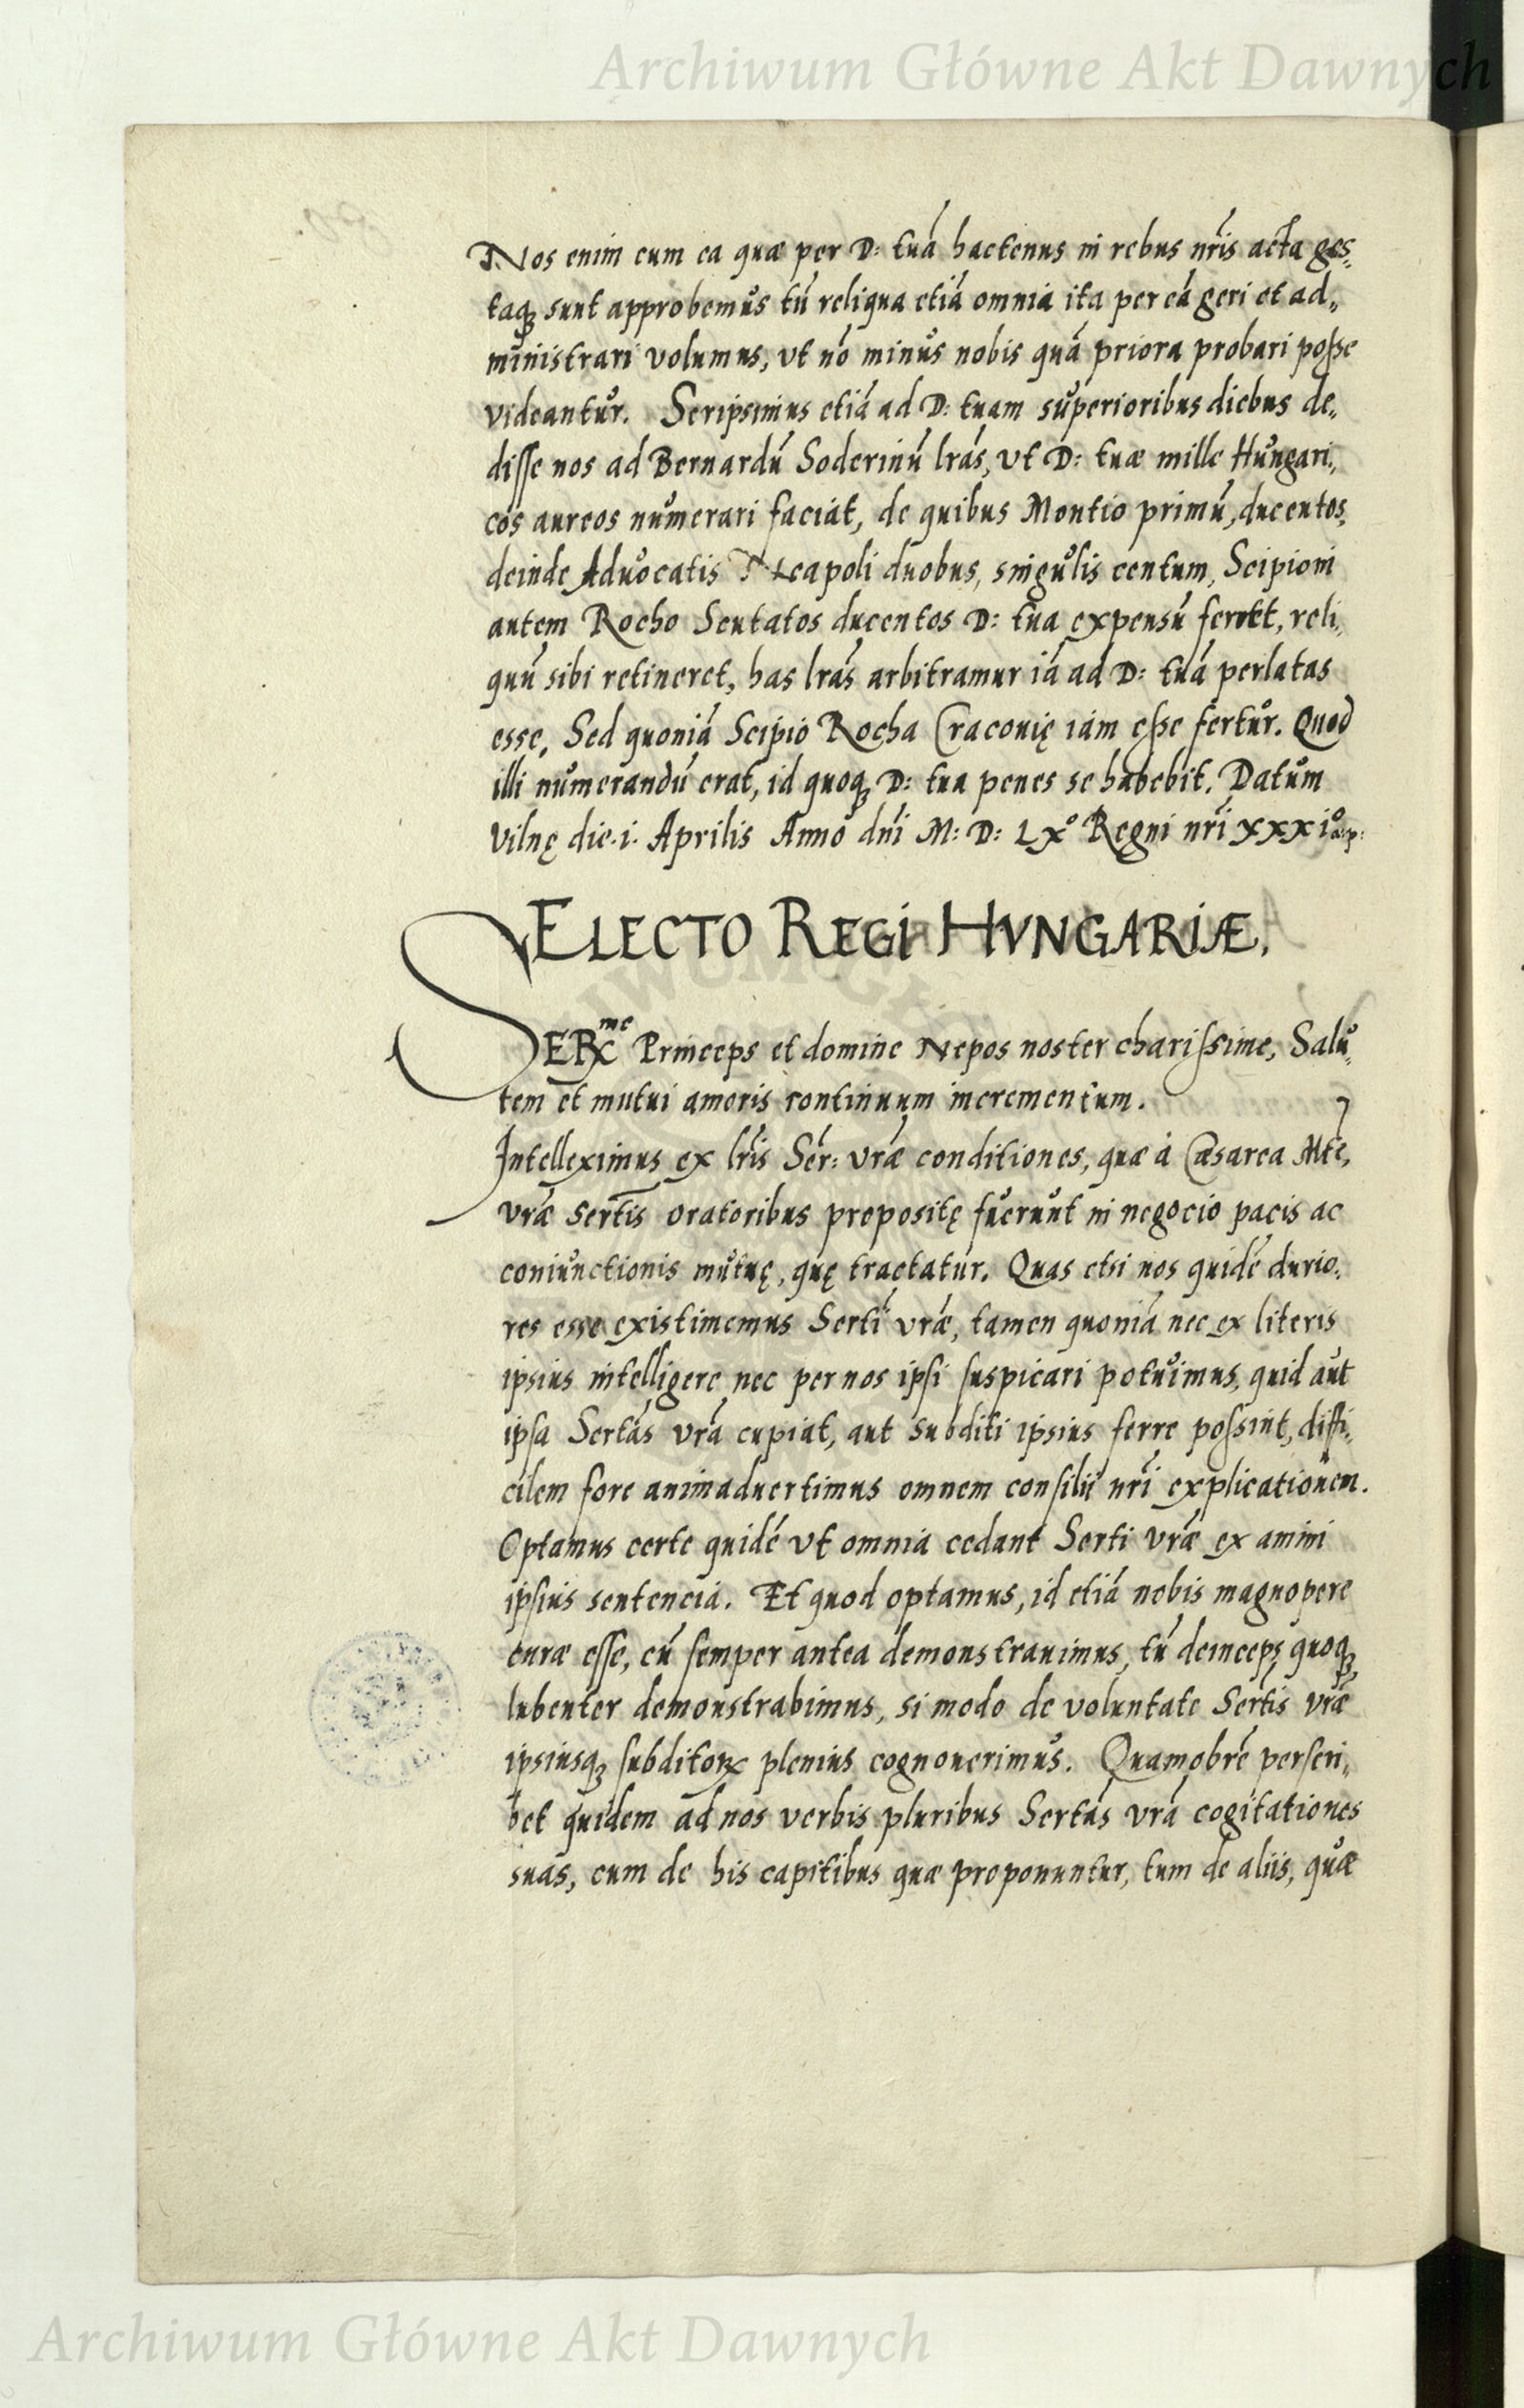 Archiwum Główne Akt Dawnych
Nos enim cum ea quæ per D: tuā hactenus in rebus nr̄is acta ges„
taqꝫ sunt approbemus tū reliqua etiā omnia ita per eā geri et ad„
ministrari volumus, vt nō minus nobis quā priora probari posse
videantur. Scripsimus etiā ad D: tuam superioribus diebus de„
disse nos ad Bernardū Soderinū lr̄as, vt D: tuæ mille Hungari„
cos aureos numerari faciat, de quibus Montio primū, ducentos,
deinde Advocatis Neapoli duobus, singulis centum, Scipioni
autem Rocho Scutatos ducentos D: tua expensū ferret, reli„
quū sibi retineret, has lr̄as arbitramur iā ad D: tuā perlatas
esse, Sed quoniā Scipio Rocha Cracouię iam esse fertur. Quod
illi numerandū erat, id quoqꝫ D: tua penes se habebit. Datum
Vilnę die .i. Aprilis Anno dn̄i M: D: Lxº Regni nr̄i xxxiº
ELECTO REGI HVNGARIÆ.
SERꝫᵐᵉ Princeps et domine Nepos noster charissime, Salu„
tem et mutui amoris continuum incrementum.
Intelleximus ex lr̄is Ser: vr̄æ conditiones, quæ à Cæsarea Mte,
vr̄æ Sertis oratoribus propositę fuerunt in negocio pacis ac
coniunctionis mutuę, quę tractatur. Quas etsi nos quidē durio„
res esse existimemus Serti vr̄æ, tamen quoniā nec ex literis
ipsius intelligere nec per nos ipsi suspicari potuimus, quid aut
ipsa Sertas vr̄a cupiat, aut subditi ipsius ferre possint, diffi„
cilem fore animaduertimus omnem consilii nr̄i explicationem.
Optamus certe quidē vt omnia cedant Serti vr̄æ ex animi
ipsius sentencia. Et quod optamus, id etiā nobis magnopere
curæ esse, cū semper antea demonstrauimus, tū deinceps quoqꝫ
lubenter demonstrabimus, si modo de voluntate Sertis vr̄æ
ipsiusqꝫ subditoꝝ plenius cognouerimus. Quamobrē perscri„
bet quidem ad nos verbis pluribus Sertas vr̄a cogitationes
suas, cum de his capitibus quæ proponuntur, tum de aliis, quæ
Archiwum Główne Akt Dawnych